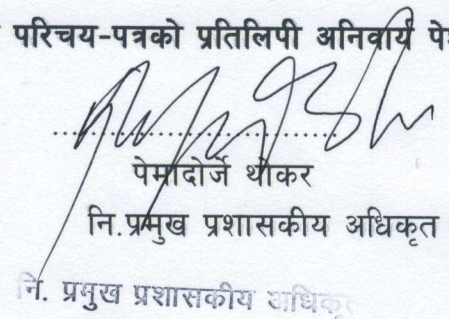 परिचय-पत्रको प्रतिलिपी अनिवार्य पे
पेमादोर्जे थोकर
नि.प्रमुख प्रशासकीय अधिकृत
नि. प्रमुख प्रशासकीय अधिकृत